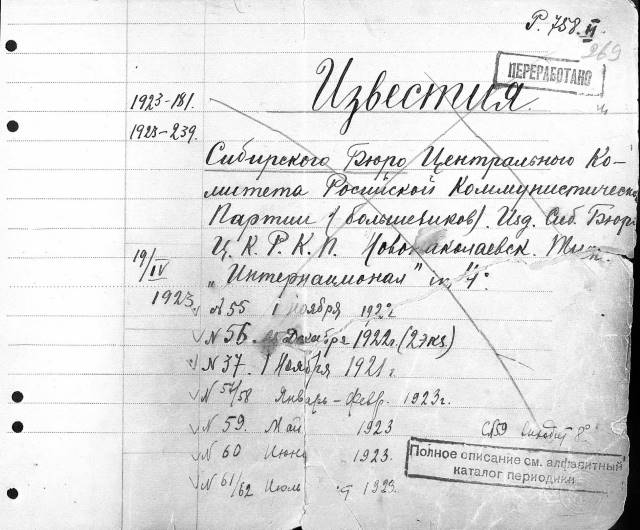 Р. 758. II
269
ПЕРЕРАБОТАНО
Известия.
1923-181.
1923-239.
Сибирского Бюро Центрального Ко-
митета Российской Коммунистическо
Партии (большевиков). Изд. Сиб. Бюро
Ц. К. Р. К. П. Новониколаевск. Тип.
19/IV
1923
„Интернационал" 4°
N 55 1 ноября 1922
N 56. Декабрь 1922г. (2 экз)
N 37. 1 Ноября 1921 г
N 57/58 Январь - Февр. 1923 г.
N 59. Май 1923
N 60 Июнь 1923.
N 61/62 Июль 1923.
8°
Полное описание см. алфавитный
каталог периодики